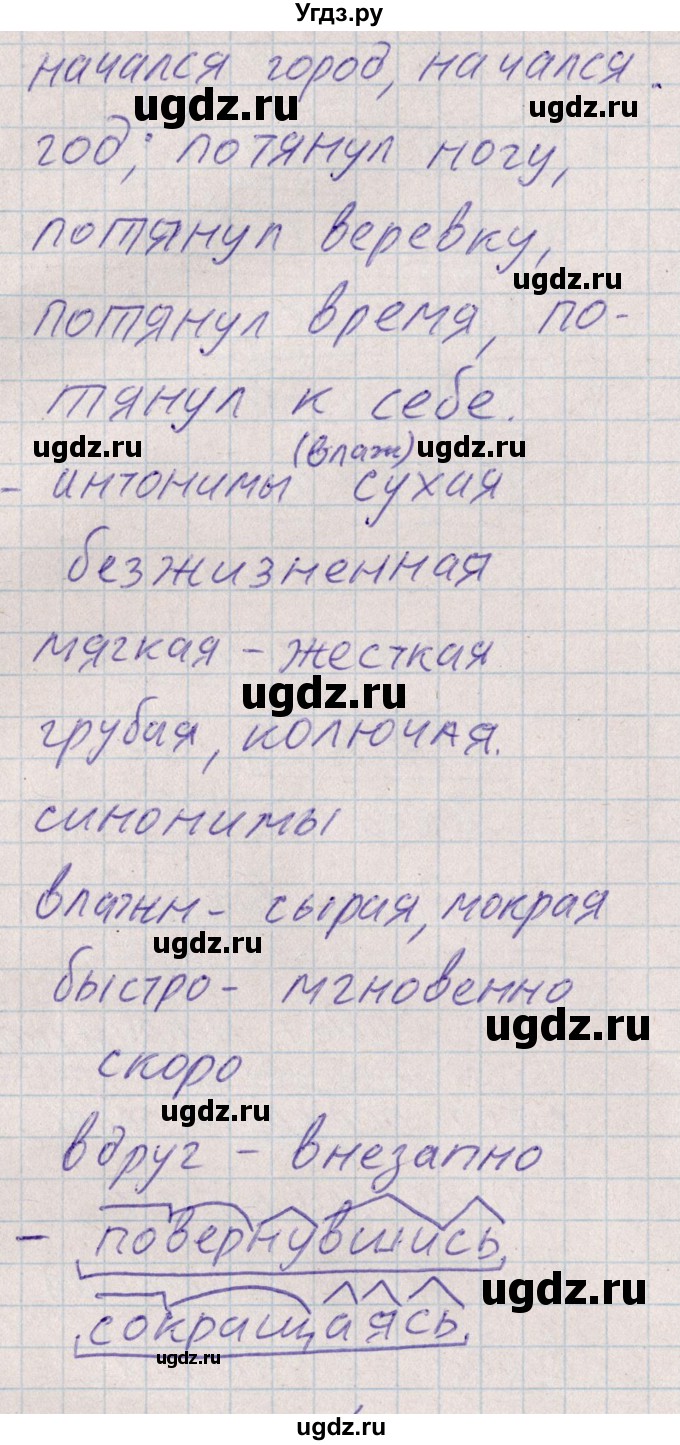 Угдз.ру
начался город, начался
ugdz.ru ugdz.ru
год; потянул ногу,
потянул веревку,
ugdz.ru
потянул время, по-
тянул к себе.
ugdz.ru (влаж) ugdz.ru
- интонимы сухая
безжизненная
мягкая - жесткая
ugdz.ru
грубая, колючая.
синонимы
влажн - сырая, мокрая
ugdz.ru
быстро - мгновенно
ugdz.ru
скоро
ugdz.ru
вдруг - внезапно
- повернувшись,
ugdz.ru
сокращаясь.
ugdz.ru
ugdz.ru